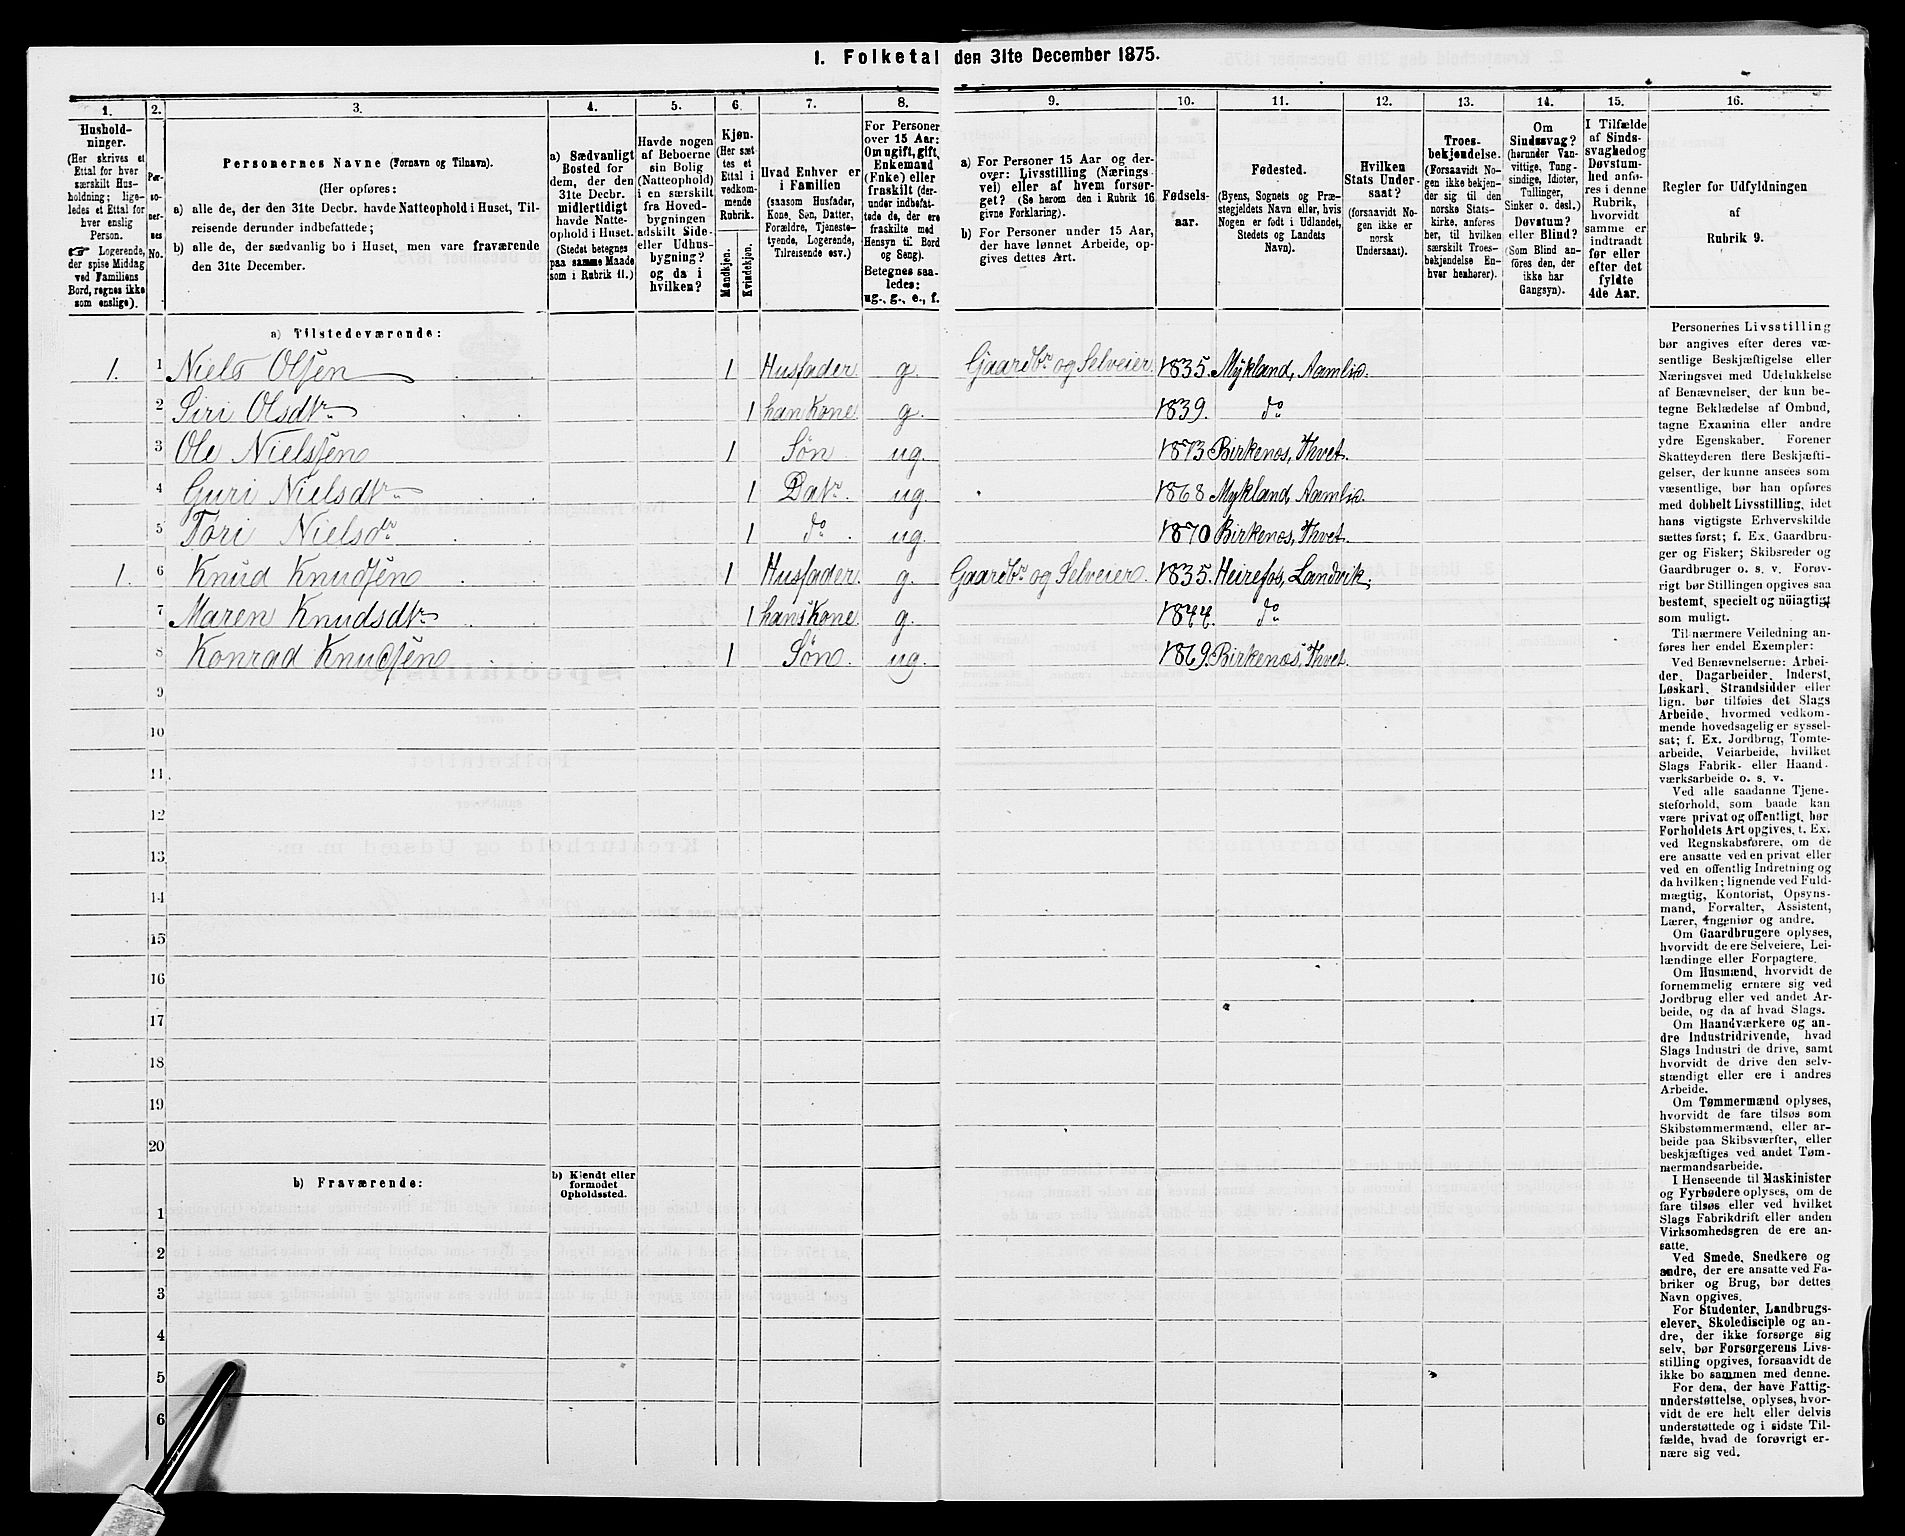 1. Folketal den 31te December 1875.
1. 2. 3. 4. 5. 6. 7. 8. 9. 10. 11. 12. 13. 14. 15. 16.
Hushold-
ninger.
(Her skrives et
Ettal for hver
særskilt Hus-
holdning; lige-
ledes et Ettal for
hver enslig
Person.
Logerende,
der spise Middag
ved Familiens
Bord, regnes ikke
som enslige).
Per-
so-
ner-
nes
No.
Personernes Navne (Fornavn og Tilnavn).
(Her opføres:
a) alle de, der den 31te Decbr. havde Natteophold i Huset, Til-
reisende derunder indbefattede;
b) alle de, der sædvanlig bo i Huset, men vare fraværende
den 31te December.
a) Sædvanligt
Bosted for
dem, der den
31te Decbr.
midlertidigt
havde Natte-
ophold i Huset.
(Stedet betegnes
paa samme Maade
som i Rubrik 11.)
Havde nogen
af Beboerne
sin Bolig
(Natteophold)
i en særskilt
fra Hoved-
bygningen
adskilt Side-
eller Udhus-
bygning?
og da i
hvilken?
Kjøn.
(Her sæt-
tes et
Ettal i
vedkom-
mende
Rubrik.
Mandkjøn.
Kvindekjøn.
Hvad Enhver er
i Familien
(saasom Husfader,
Kone, Søn, Datter,
Forældre, Tjeneste-
tyende, Logerende,
Tilreisende osv.)
For Personer
over 15 Aar:
Om ugift, gift,
Enkemand
(Enke) eller
fraskilt (der-
under indbefat-
tede de, der ere
fraskilte med
Hensyn til Bord
og Seng).
Betegnes saa-
ledes:
ug., g., e., f.
a) For Personer 15 Aar og der-
over: Livsstilling (Nærings-
vei) eller af hvem forsør-
get? (Se herom den i Rubrik 16
givne Forklaring).
b) For Personer under 15 Aar,
der have lønnet Arbeide, op-
gives dettes Art.
Fødsels-
aar.
Fødested.
(Byens, Sognets og Præ-
stegjeldets Navn eller, hvis
Nogen er født i Udlandet,
Stedets og Landets
Navn).
Hvilken
Stats Under-
saat?
(forsaavidt No-
gen ikke er
norsk
Undersaat).
Troes-
bekjendelse.
(Forsaavidt No-
gen ikke bekjen-
der sig til den
norske Stats-
kirke, anføres
her, til hvilken
særskilt Troes-
bekjendelse En-
hver henhører).
Om
Sindssvag?
(herunder Van-
vittige, Tung-
sindige, Idioter,
Tullinger,
Sinker o. desl.)
Døvstum?
eller Blind?
(Som Blind an-
føres den, der
ikke har
Gangsyn).
I Tilfælde
af Sinds-
svaghed og
Døvstum-
hed anfø-
res i denne
Rubrik,
hvorvidt
samme er
indtraadt
før eller
efter det
fyldte
4de Aar.
Regler for Udfyldningen
af
Rubrik 9.
a) Tilstedeværende:
1. 1 Niels Olsen 1 Husfader g. Gaardbr. og Selveier 1835. Mykland, Aamlid.
2 Siri Olsdtr. 1 hans Kone g. 1839. do
3 Ole Nielssen 1 Søn ug. 1873 Birkenes, Thvet.
4 Guri Nielsdtr. 1 Datr. ug. 1868 Mykland, Aamlid.
5 Tori Nielsdr. 1 do. ug. 1870 Birkenes, Thvet.
1. 6 Knud Knudsen 1 Husfader g. Gaardbr. og Selveier. 1835. Heirefos, Landvik.
7 Maren Knudsdtr. 1 hans Kone. g. 1844. do
8 Konrad Knudsen 1 Søn. ug. 1869. Birkenes, Thvet.
9
10
11
12
13
14
15
16
17
18
19
20
b) Fraværende:
b) Kjendt eller
formodet
Opholdssted.
1
2
3
4
5
6
Personernes Livsstilling
bør angives efter deres væ-
sentlige Beskjæftigelse eller
Næringsvei med Udelukkelse
af Benævnelser, der kun be-
tegne Beklædelse af Ombud,
tagne Examina eller andre
ydre Egenskaber. Forener
Skatteyderen flere Beskjæfti-
gelser, der kunne ansees som
væsentlige, bør han opføres
med dobbelt Livsstilling, idet
hans vigtigste Erhvervskilde
sættes først; f. Ex. Gaardbru-
ger og Fisker; Skibsreder og
Gaardbruger o. s. v. Forøv-
rigt bør Stillingen opgives saa
bestemt, specielt og nöiagtigt
som muligt.
Til nærmere Veiledning an-
føres her endel Exempler:
Ved Benævnelserne: Arbei-
der, Dagarbeider, Inderst,
Løskarl, Strandsidder eller
lign. bør tilføies det Slags
Arbeide, hvormed vedkom-
mende hovedsagelig er syssel-
sat; f. Ex. Jordbrug, Tomte-
arbeide, Veiarbeide, hvilket
Slags Fabrik- eller Haand-
værksarbeide o. s. v.
Ved alle saadanne Tjene-
steforhold, som baade kan
være privat og offentligt, bør
Forholdets Art opgives, t. Ex.
ved Regnskabsførere, om de
ere ansatte ved en privat eller
ved en offentlig Indretning og
da hvilken; lignende ved Fuld-
mægtig, Kontorist, Opsyns-
mand, Forvalter, Assistent,
Lærer, Ingeniør og andre.
Om Gaardbrugere oplyses,
hvorvidt de ere Selveiere, Lei-
lændinge eller Forpagtere.
Om Husmænd, hvorvidt de
fornemmelig ernære sig ved
Jordbrug eller ved andet Ar-
beide, og da af hvad Slags.
Om Haandværkere og an-
dre Industridrivende, hvad
Slags Industri de drive, samt
hvorvidt de drive den selv-
stændigt eller ere i andres
Arbeide.
Om Tømmermænd oplyses,
hvorvidt de fare tilsøs som
Skibstømmermænd, eller ar-
beide paa Skibsværfter, eller
beskjæftiges ved andet Tøm-
mermandsarbeide.
I Henseende til Maskinister
og Fyrbødere oplyses, om de
fare tilsøs eller ved hvilket
Slags Fabrikdrift eller anden
Virksomhedsgren de ere an-
satte.
Ved Smede, Snedkere og
andre, der ere ansatte ved Fa-
briker og Brug, bør dettes
Navn opgives.
For Studenter, Landbrugs-
elever, Skoledisciple og an-
dre, der ikke forsørge sig
selv, bør Forsørgerens Livs-
stilling opgives, forsaavidt de
ikke bo sammen med denne.
For dem, der have Fattig-
understøttelse, oplyses, hvor-
vidt de ere helt eller delvis
understøttede og i sidste Til-
fælde, hvad de forøvrigt er-
nære sig ved.